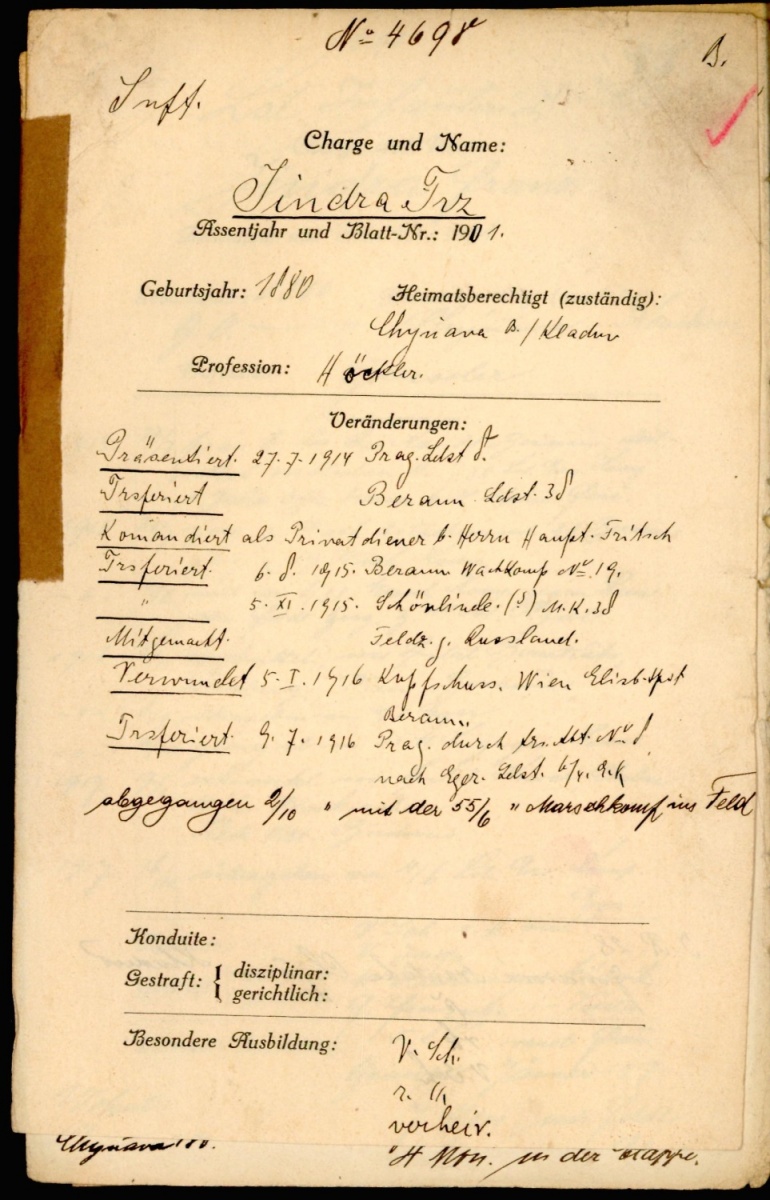 No 4698
B.
Inft.
Charge und Name:
Jindra Frz
Assentjahr und Blatt-Nr.: 1901.
Geburtsjahr: 1880
Heimatsberechtigt (zuständig):
Chyňava B./Kladno
Profession:
Veränderungen:
Präsentiert. 27.7.1914 Prag. Ldst 8.
Trsferiert Beraun Ldst. 38
Komandiert als Privatdiener b. Herrn Haupt. Fritsch
Trsferiert. 6. 8. 1915. Beraun Wachkomp No 19.
" 5. XI. 1915. Schönlinde. (8) M.K. 38
Mitgemacht. Feldz. g. Russland.
Verwundet 5. I. 1916 Kopfschuss. Wien Elisb. Spit
Beraun.
Trsferiert. 9. 7. 1916 Prag. durch No 8
nach Eger. Ldst. 6/
abgegangen 2/10 " mit der 55/6 " Marschkomp ins Feld
Konduite:
Gestraft: { disziplinar:
gerichtlich:
Besondere Ausbildung:
V. Sch.
verheir.
Chyňava
4 Mon. in der Etappe.